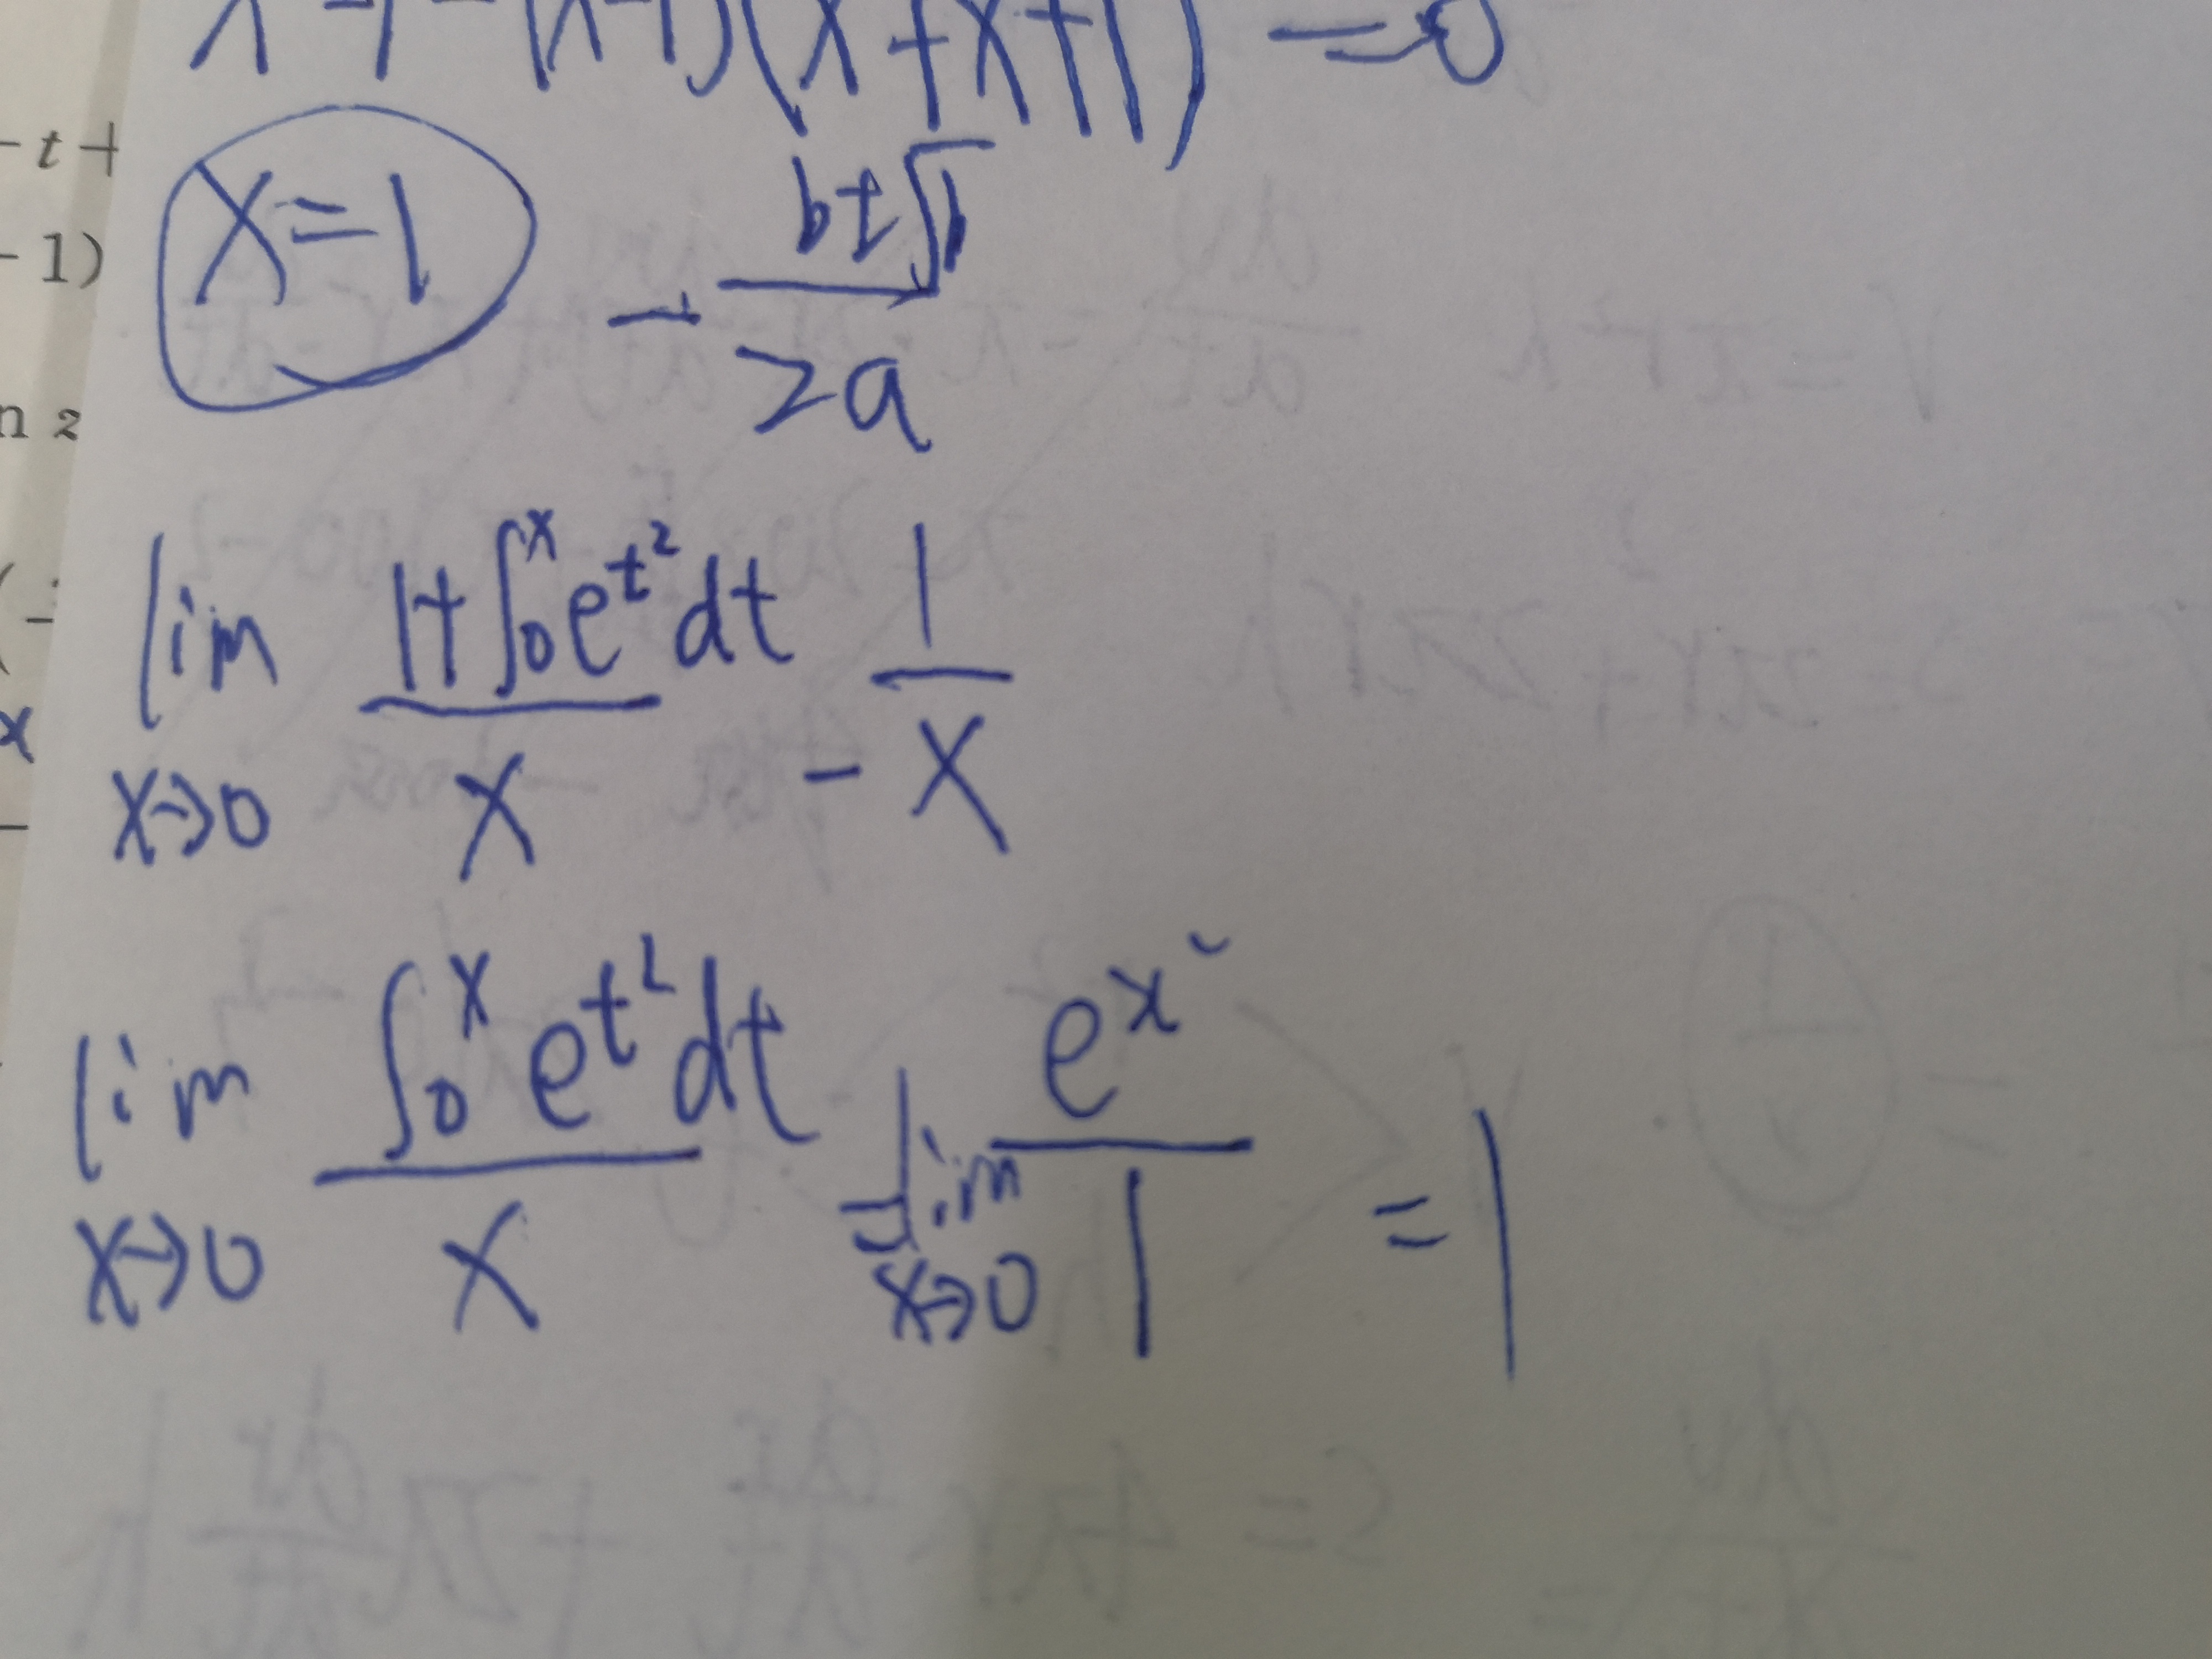 (x+x+1) =0
-t+
x=1
-1)
- b±√b / 2a
n z
lim x→0 (1+∫₀ˣ e^t² dt)/x - 1/x
x
lim x→0 (∫₀ˣ e^t² dt)/x = lim x→0 e^x²/1 = 1